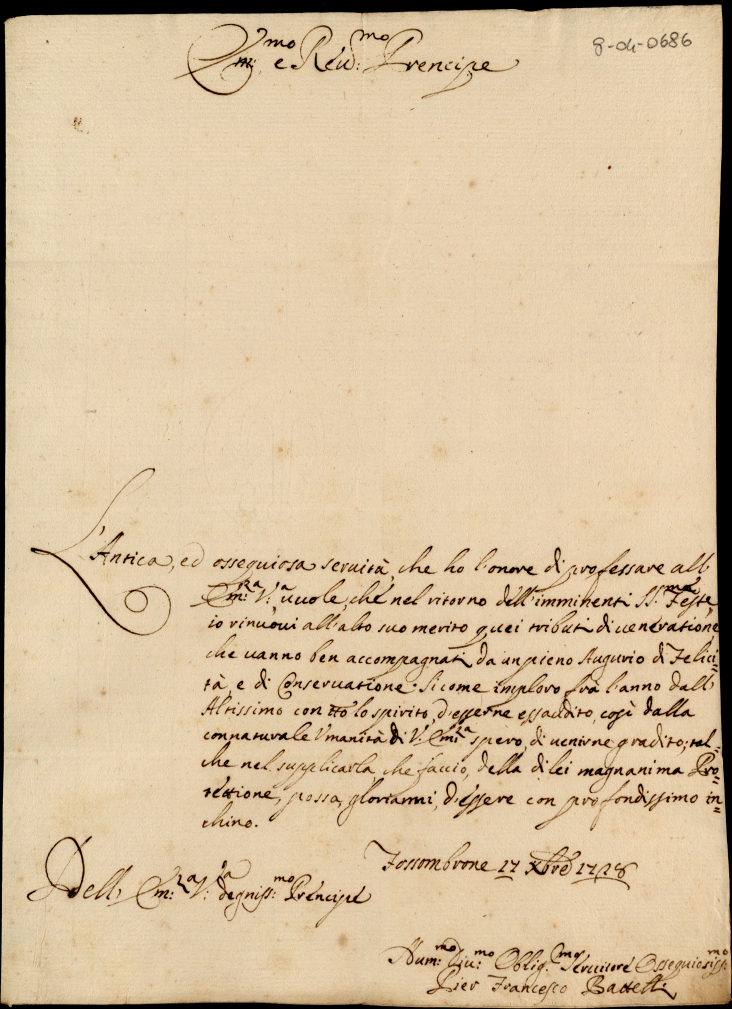 8-04-0686
Em:mo e Reu:d:mo Prencipe
L'Antica, ed ossequiosa seruitù, che ho l'onore di professare all'
Em:za V:a uuole, che nel ritorno dell'imminenti SS:me Feste
io rinuoui all'alto suo merito quei tributi di ueneratione
che uanno ben accompagnati da un pieno Augurio di Felici=
tà, e di Conseruatione: Sicome imploro frà l'anno dall'
Altissimo con tto lo spirito, d'esserne essaudito, così dalla
connaturale Umanità di V: Em:za spero, di uenirne gradito; tal=
che nel supplicarla, che faccio, della di lei magnanima Pro=
tettione, possa gloriarmi, d'essere con profondissimo in=
chino.
Fossombrone 17 Xbre 1728
Dell' Em:za V:a degniss:mo Prencipe
Hum:mo Diu:mo Oblig:mo Seruitore Ossequiosiss:mo
Pier Francesco Battelli